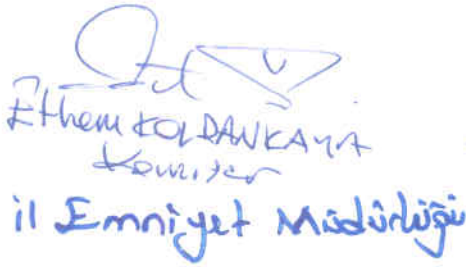 Ethem KOLDANKAYA
Komiser
il Emniyet Müdürlüğü